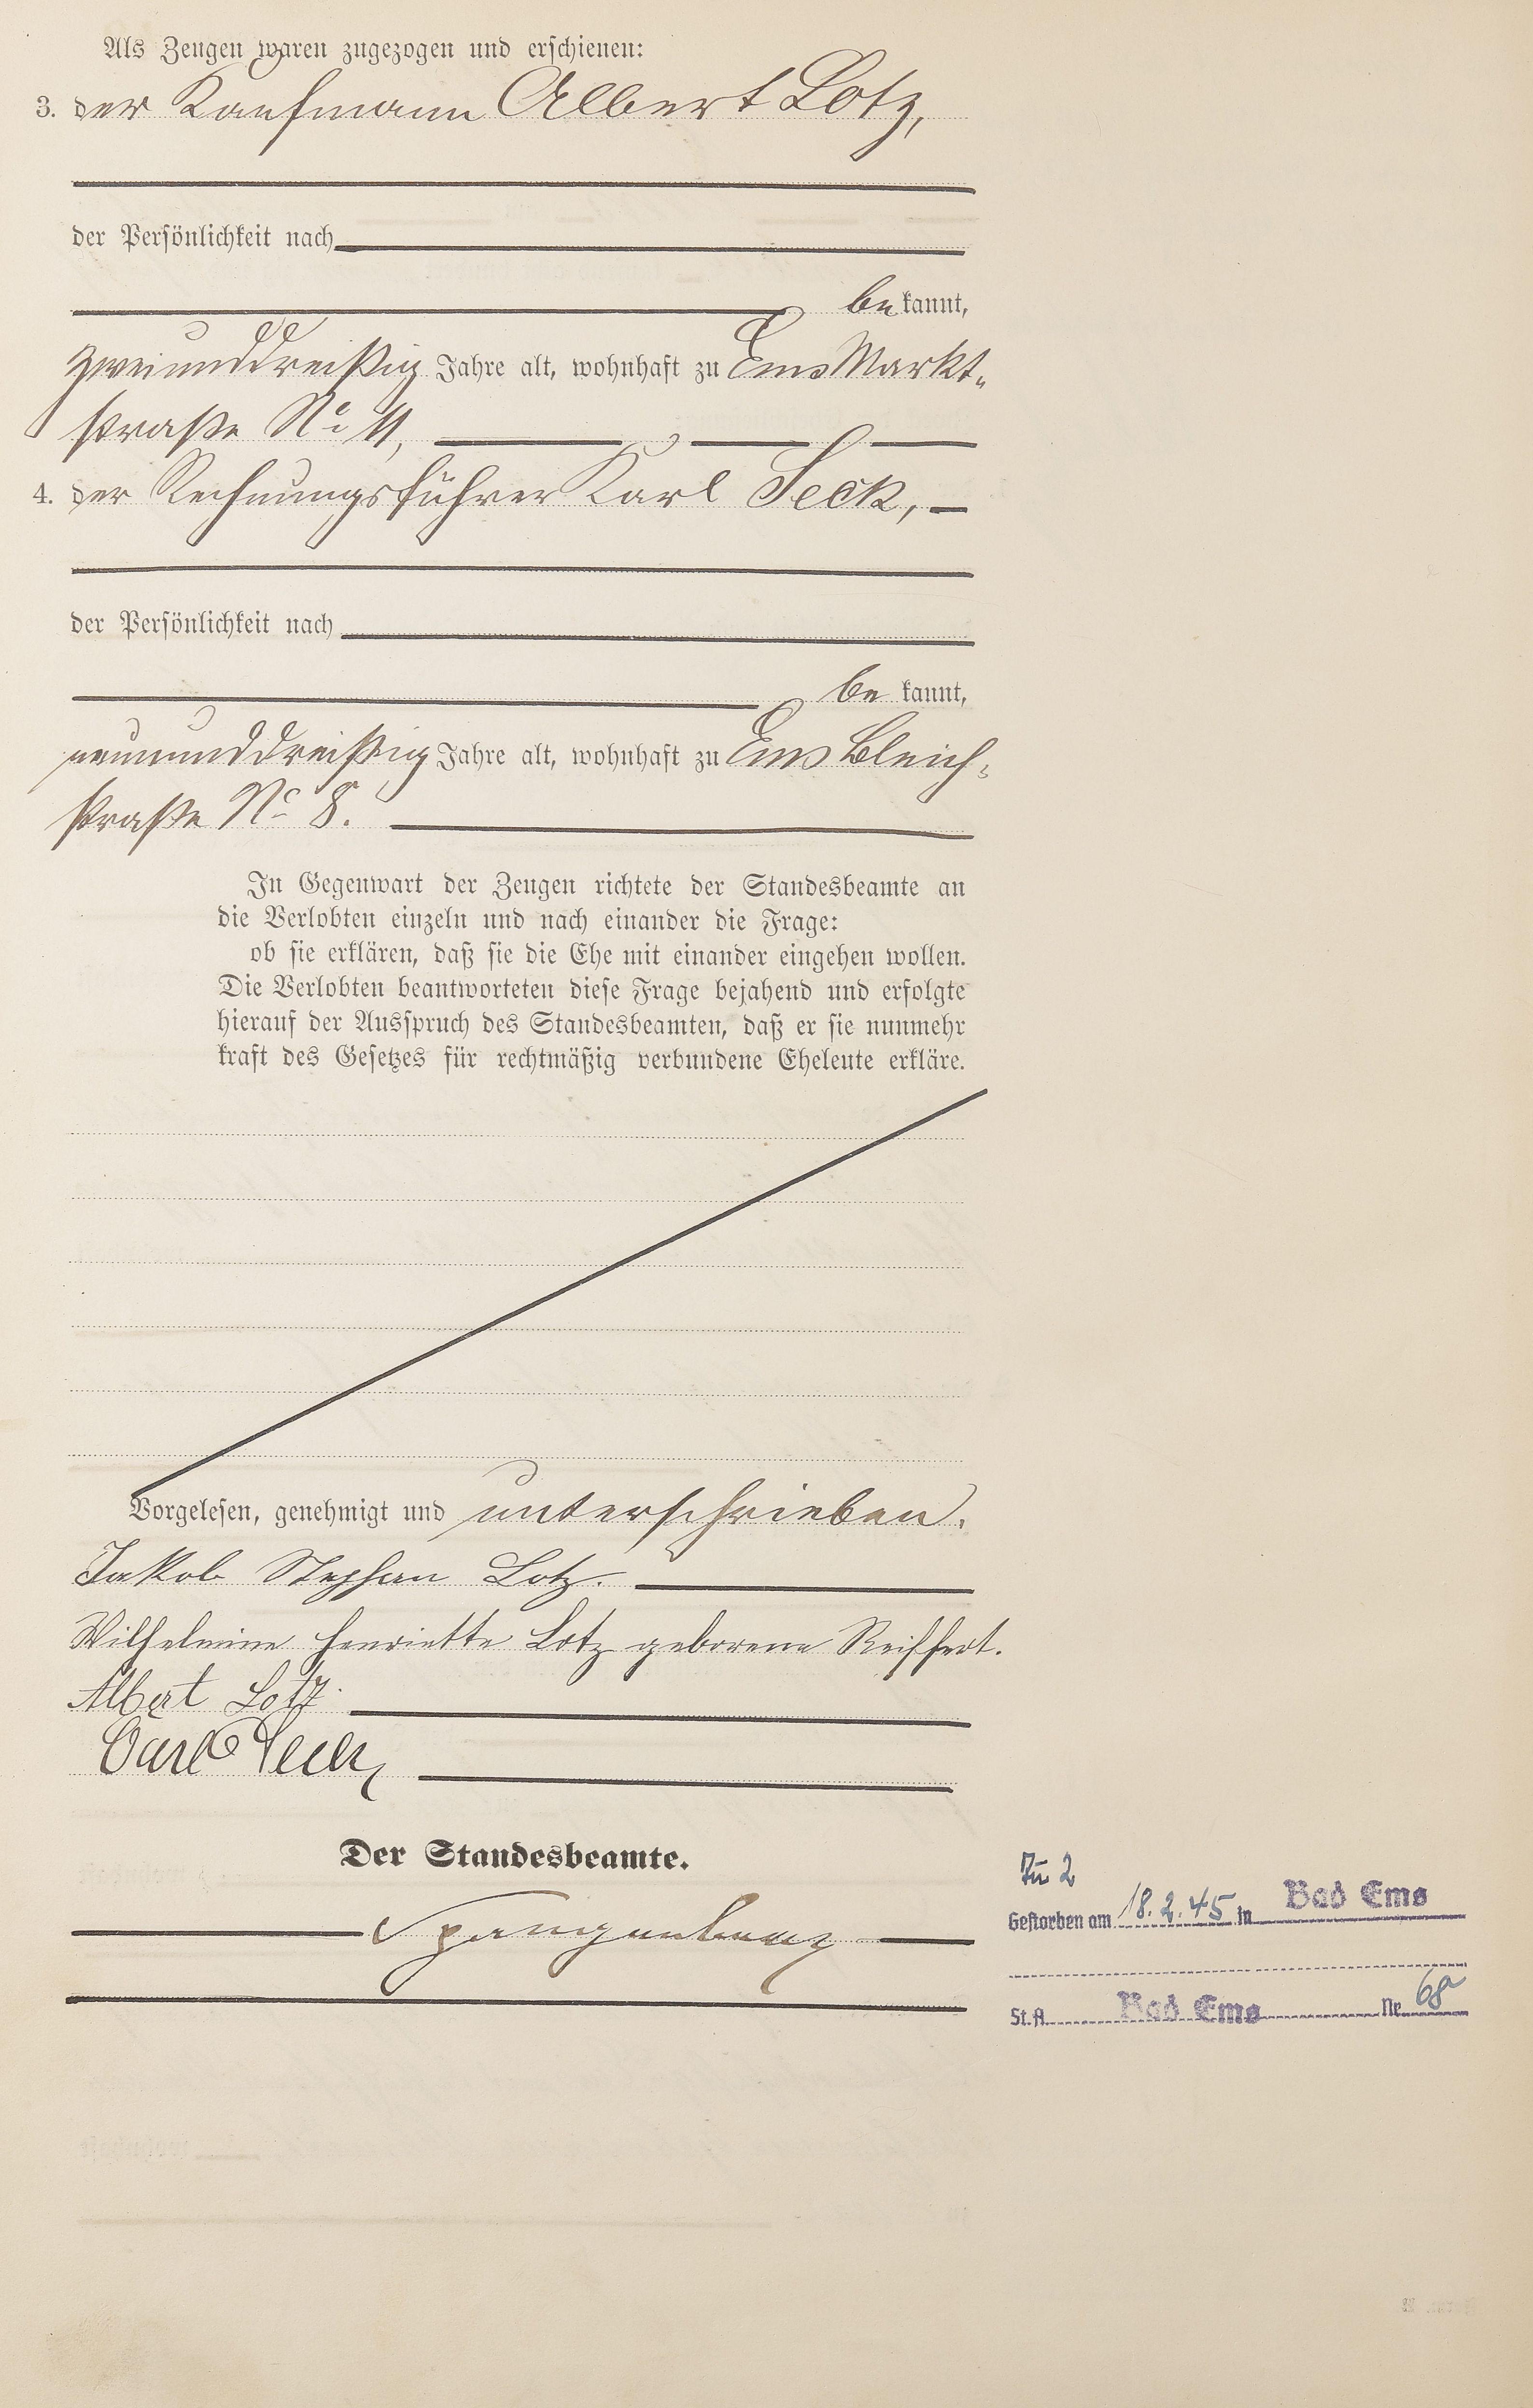 Als Zeugen waren zugezogen und erschienen:
3. der Kaufmann Albert Lotz,
der Persönlichkeit nach
bekannt,
zweiunddreißig Jahre alt, wohnhaft zu Ems Markt-
straße No 11,
4. der Rechnungsführer Karl Seck,
der Persönlichkeit nach
be kannt,
neununddreißig Jahre alt, wohnhaft zu Ems Bleich-
straße No 8.
In Gegenwart der Zeugen richtete der Standesbeamte an
die Verlobten einzeln und nach einander die Frage:
ob sie erklären, daß sie die Ehe mit einander eingehen wollen.
Die Verlobten beantworteten diese Frage bejahend und erfolgte
hierauf der Ausspruch des Standesbeamten, daß er sie nunmehr
kraft des Gesetzes für rechtmäßig verbundene Eheleute erkläre.
Vorgelesen, genehmigt und unterschrieben.
Jakob Stephan Lotz.
Wilhelmine Henriette Lotz geborene Reiffert.
Albert Lotz.
Carl Seck
Der Standesbeamte.
Spangenberg
Zu 2
Gestorben am 18.2.45 in Bad Ems
St.A. Bad Ems Nr. 68a